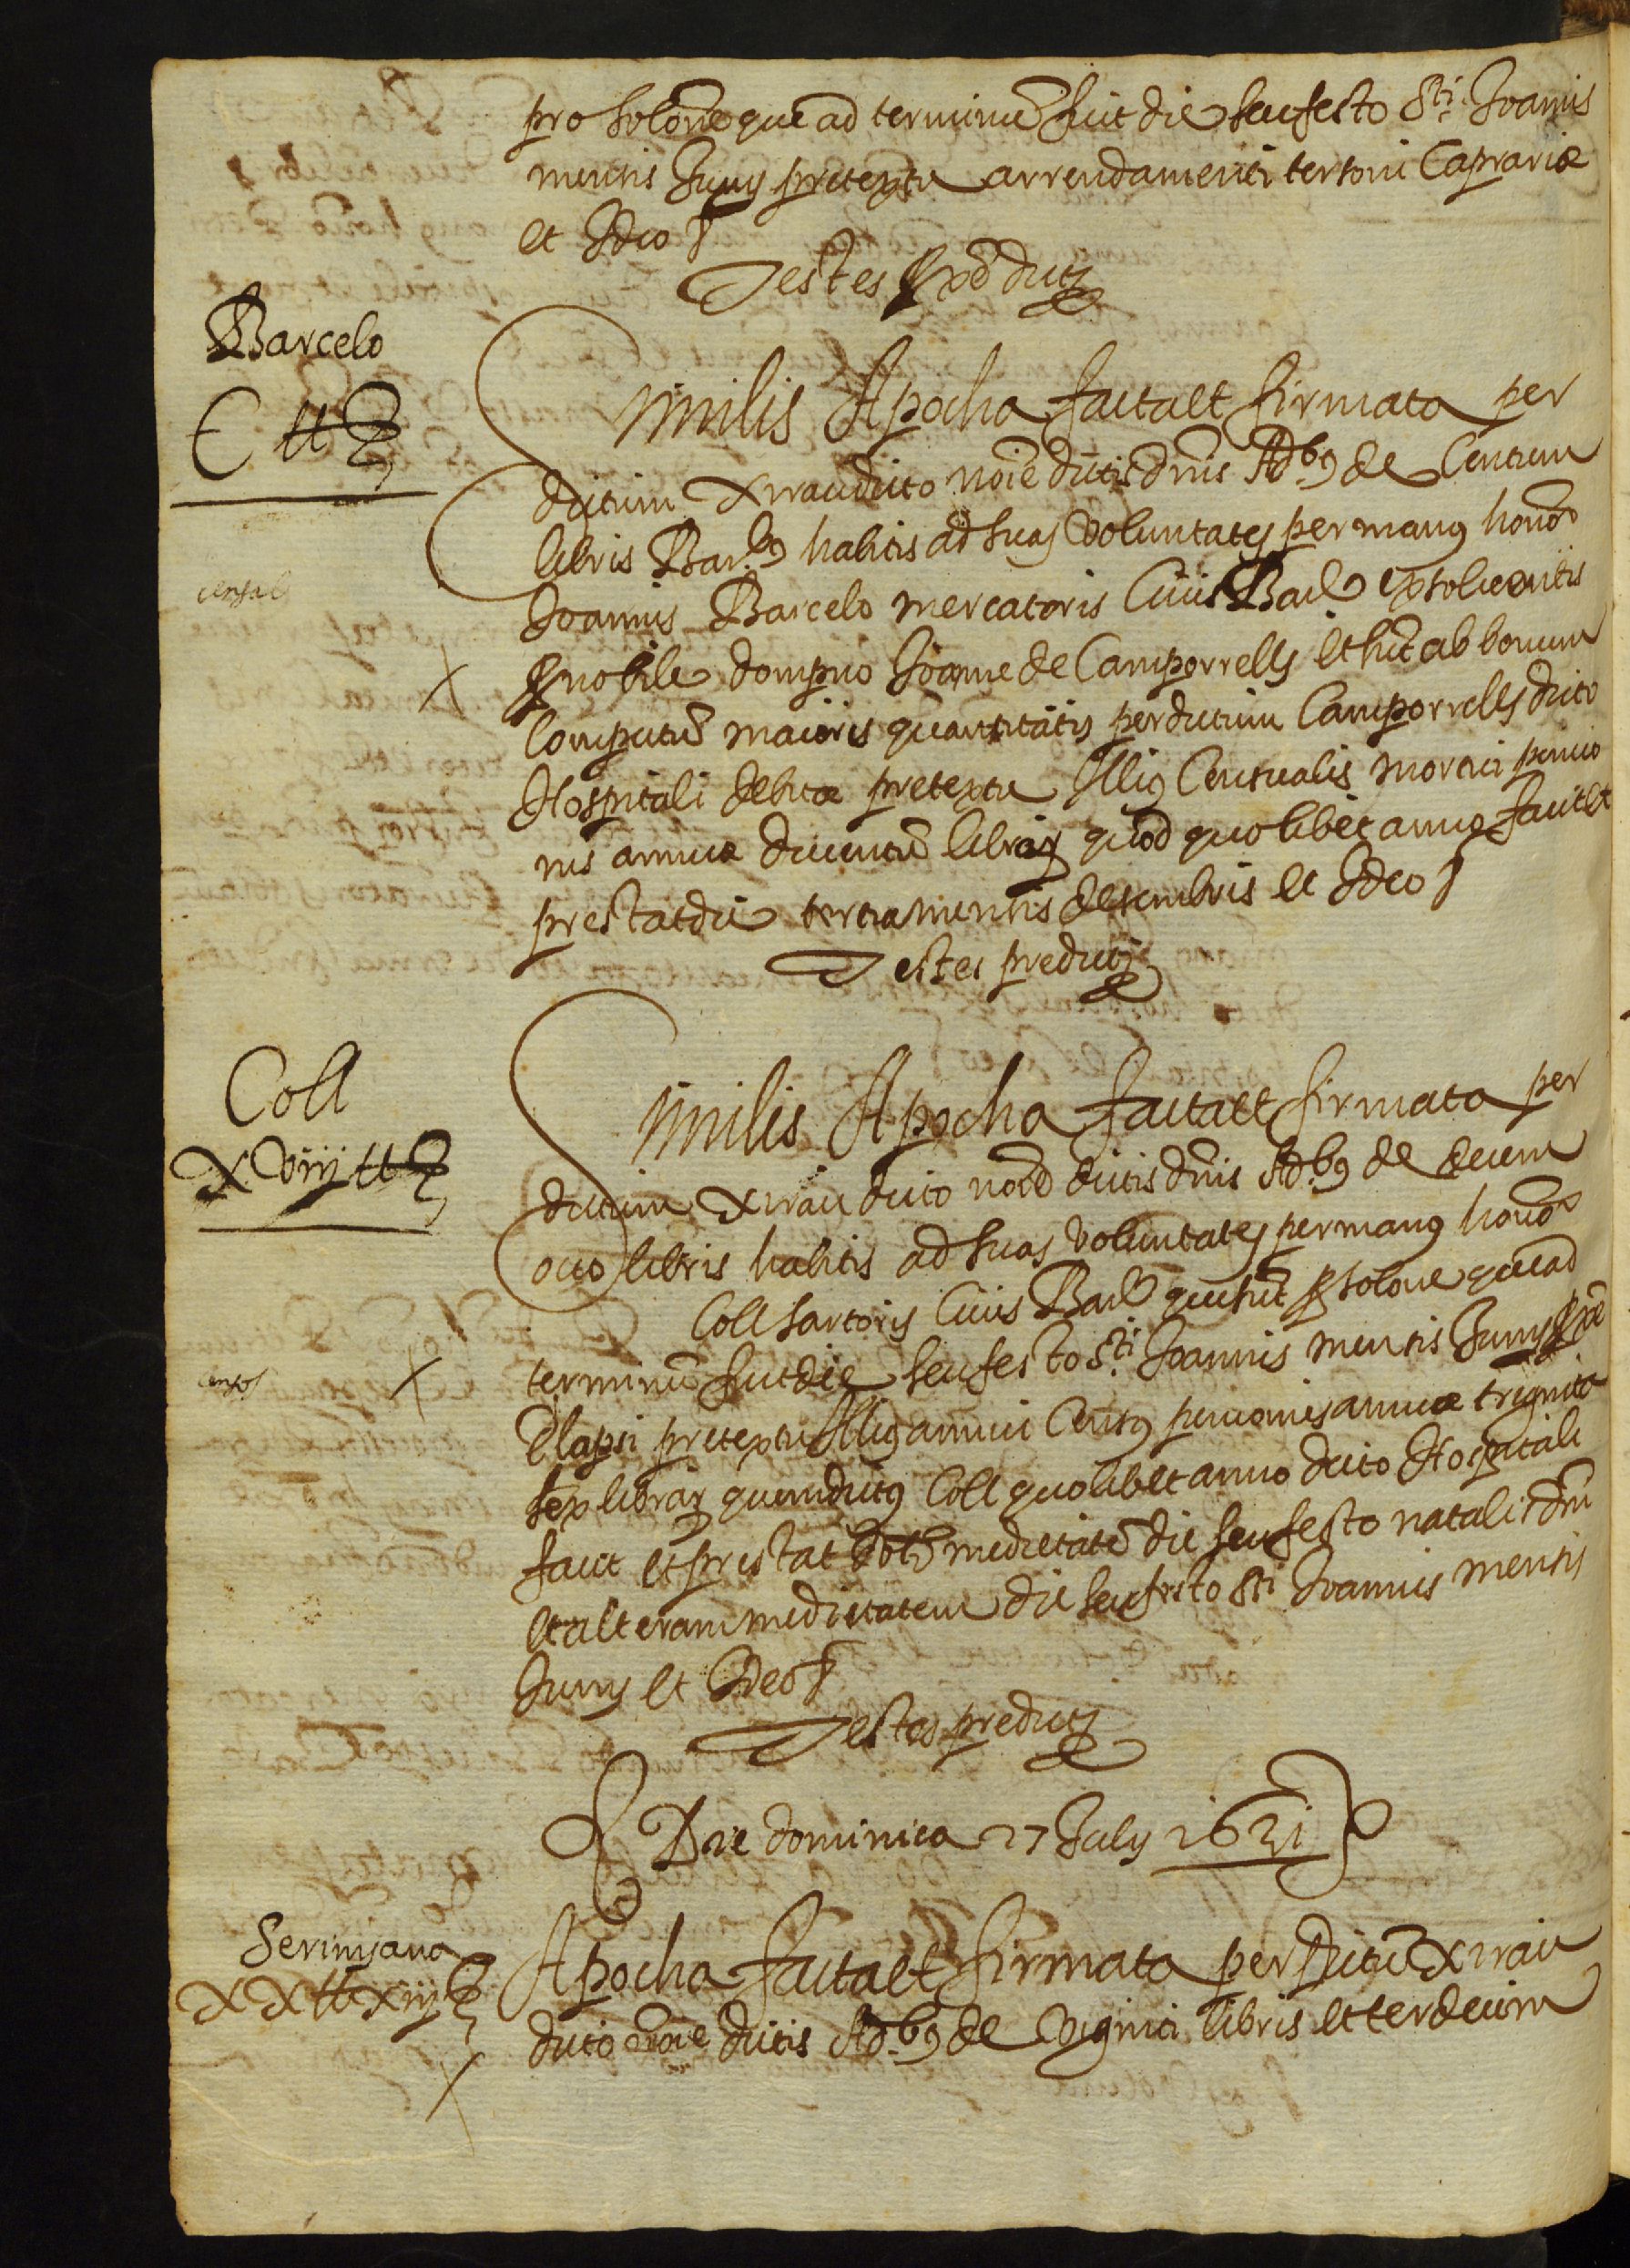 pro solone que ad terminu fuit die seu festo Sti. Joannis
mensis Junij pretextu arrendamenti Caprariæ
et Ideo
Testes predicti
Barcelo
C ℔
Similis Apocha facta et firmata per
dictum Xirau dicto noīe dictis dnis Adbꝰ de Centum
libris Bar. habitis ad suas voluntates per manus honor
censal
Joannis Barcelo mercatoris Civis Bar exsolventis
pro nobile dompno Joanne de Camporrells et sut ad bonum
Computu maioris quantitatis per dictum Camporrells dicto
Hospitali debitæ pretextu Illius Censualis mortui pencio
nis annuæ ducentu librar quod quolibet anno facit et
prestat die tertia mensis desembris et Ideo
Testes predicti
Coll
Xviij ℔
Similis Apocha facta et firmata per
dictum Xirau dicto noīe dictis dnis Adbꝰ de decem
octo libris habitis ad suas voluntates per manus honor
Coll sartoris Civis Bar que sut pro solone que ad
censos
terminu fuit die seu festo Sti. Joannis mensis Junij pre
elapsi pretextu Illius annui Census pencionis annuæ triginta
sex librar quem dictus Coll quolibet anno dicto Hospitali
facit et prestat medietate die seu festo natalis dni
et alteram medietatem die seu festo Sti Joannis mensis
Junij et Ideo
Testes predicti
Die dominica 27 Julij 1631
XX ℔ xiij
Apocha facta et firmata per dictu Xirau
dicto noīe dictis Adbꝰ de viginti libris et terdecim